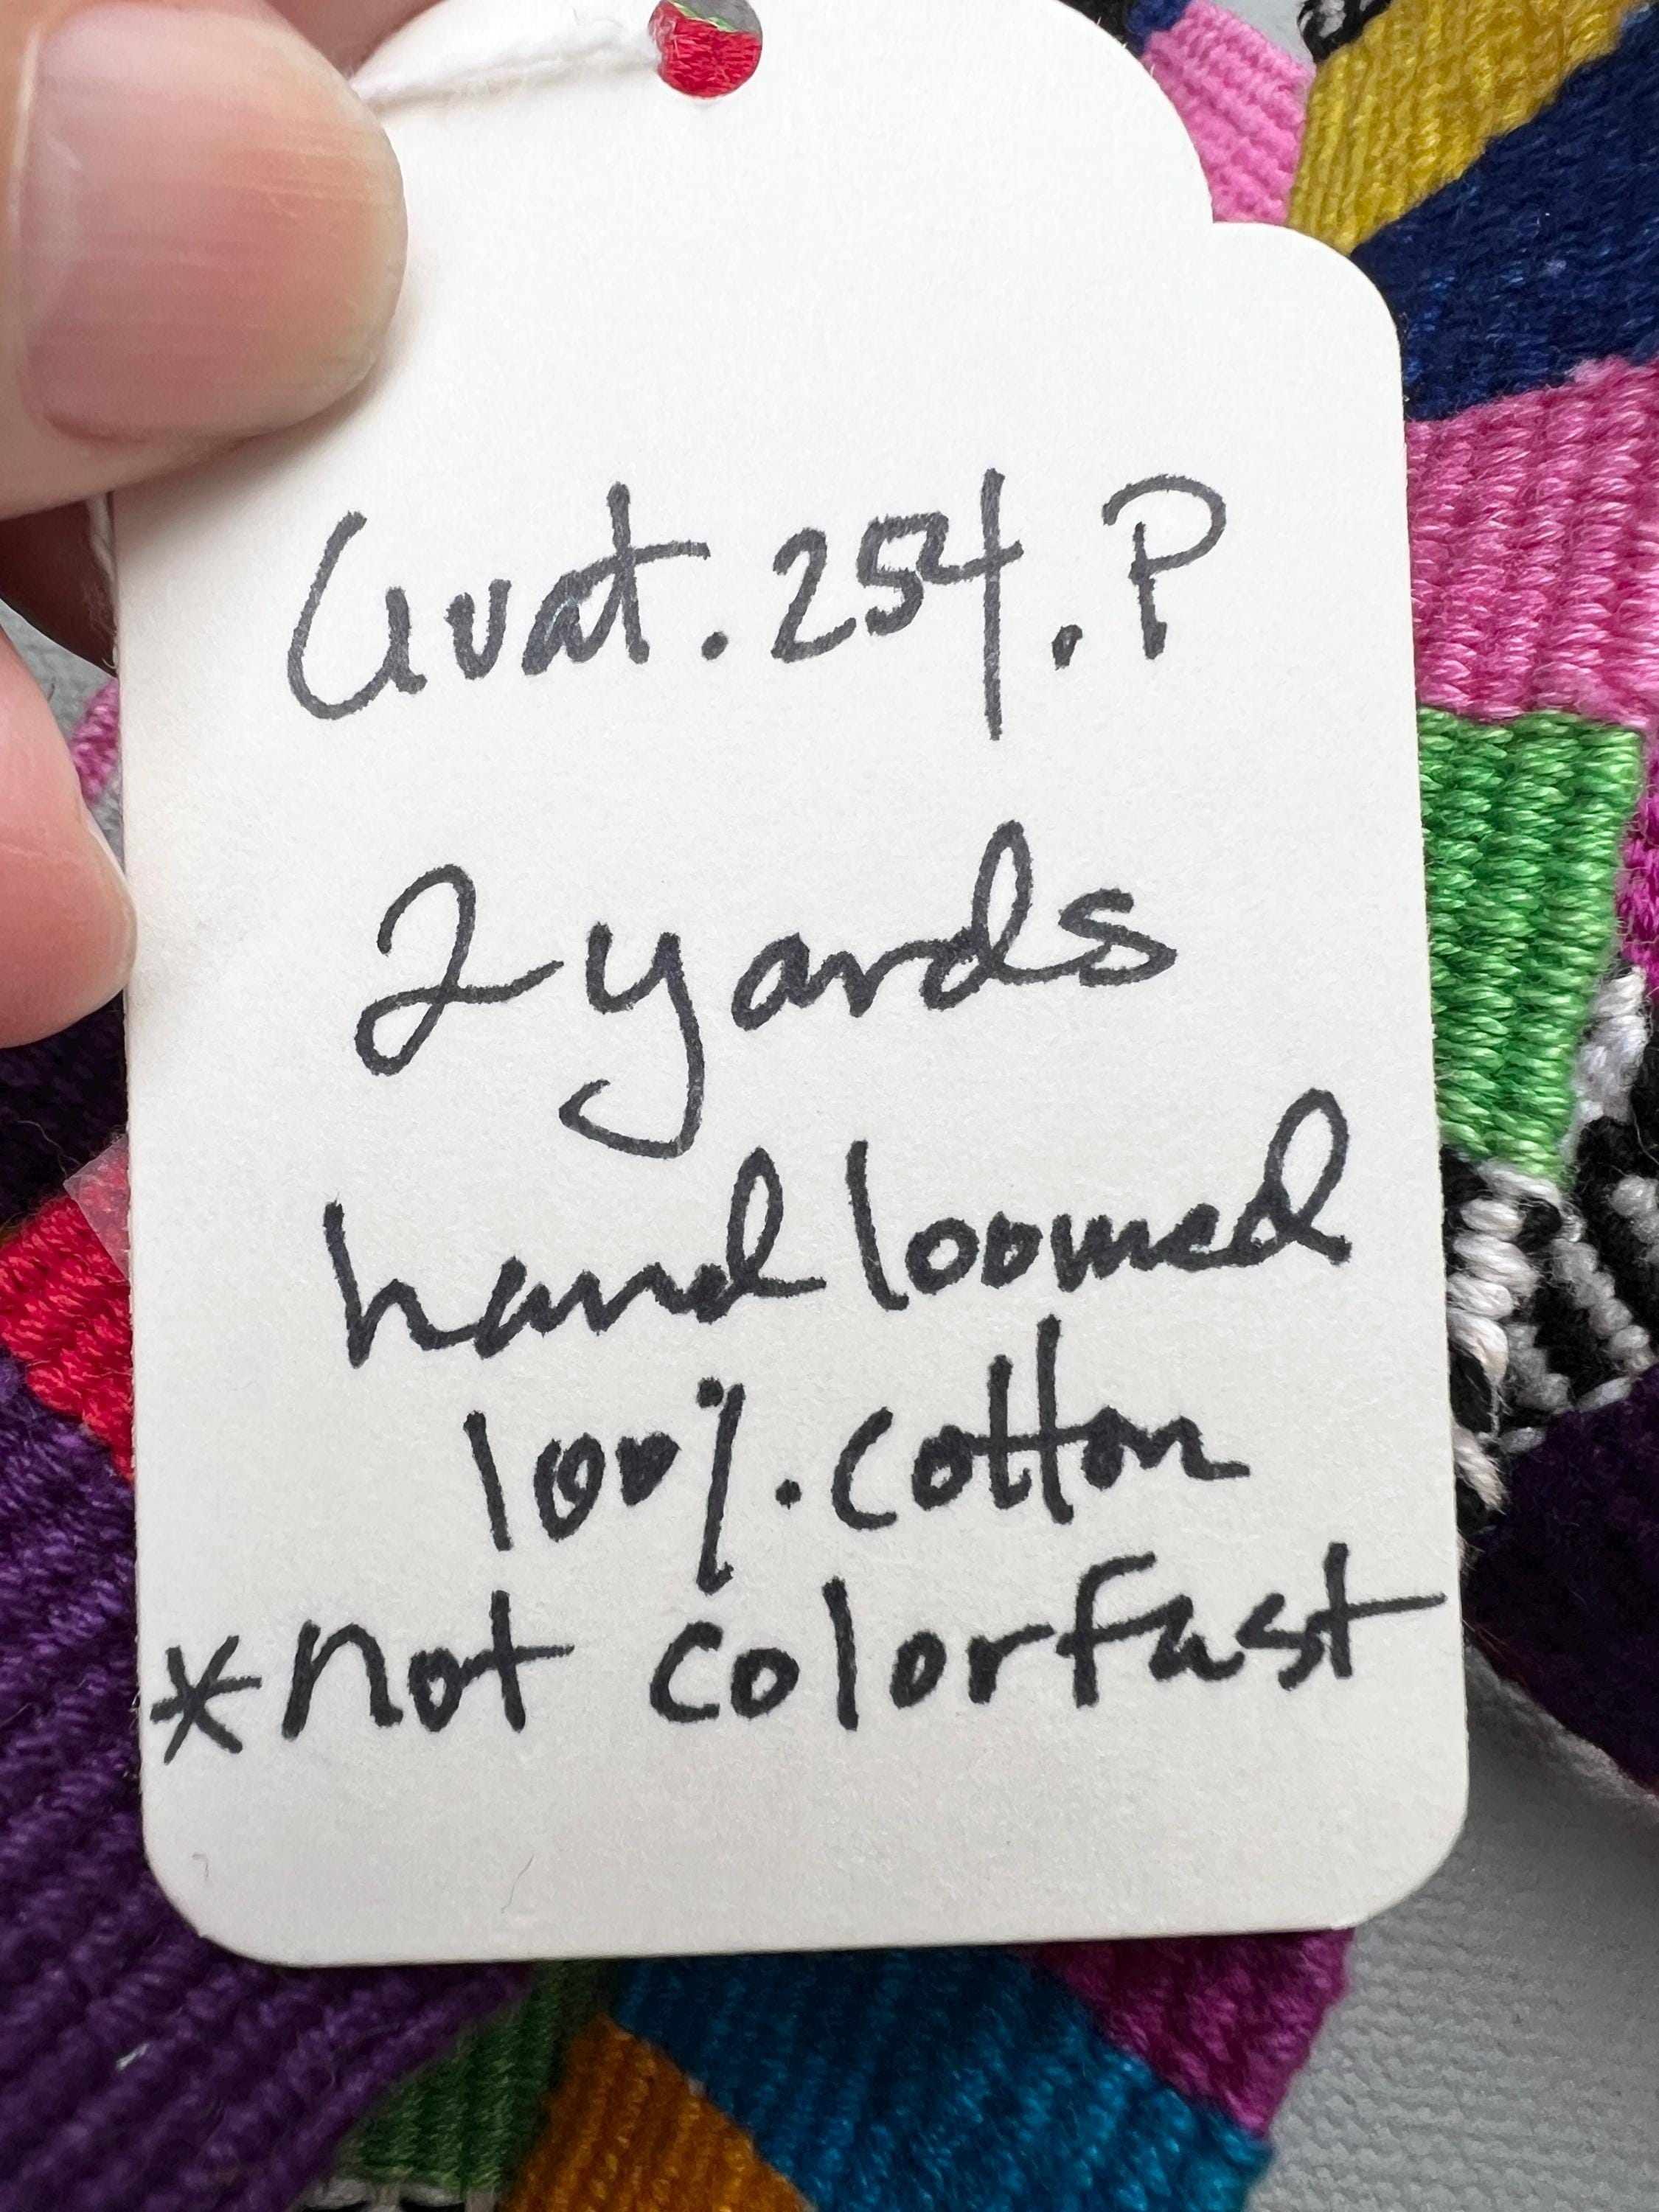 Guat.254.P
2 yards
hand loomed
100%. cotton
*not colorfast